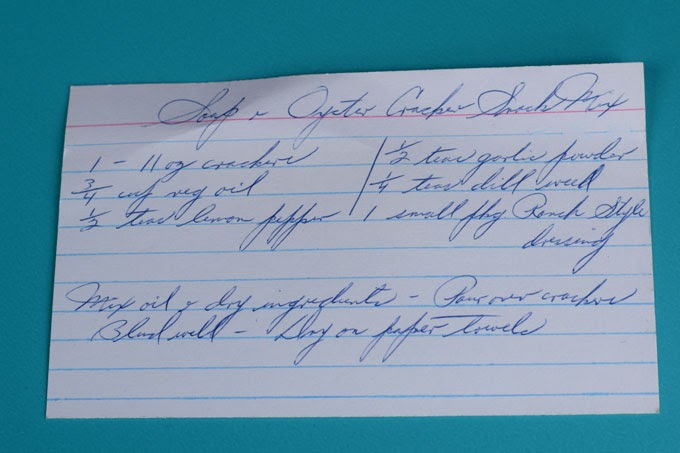 Soup & Oyster Cracker Snack Mix
1 - 11 oz crackers
3/4 cup veg oil
1/2 teas lemon pepper
1/2 teas garlic powder
1/4 teas dill weed
1 small pkg Ranch Style
dressing
Mix oil & dry ingredients - Pour over crackers
Blend well - Dry on paper towels